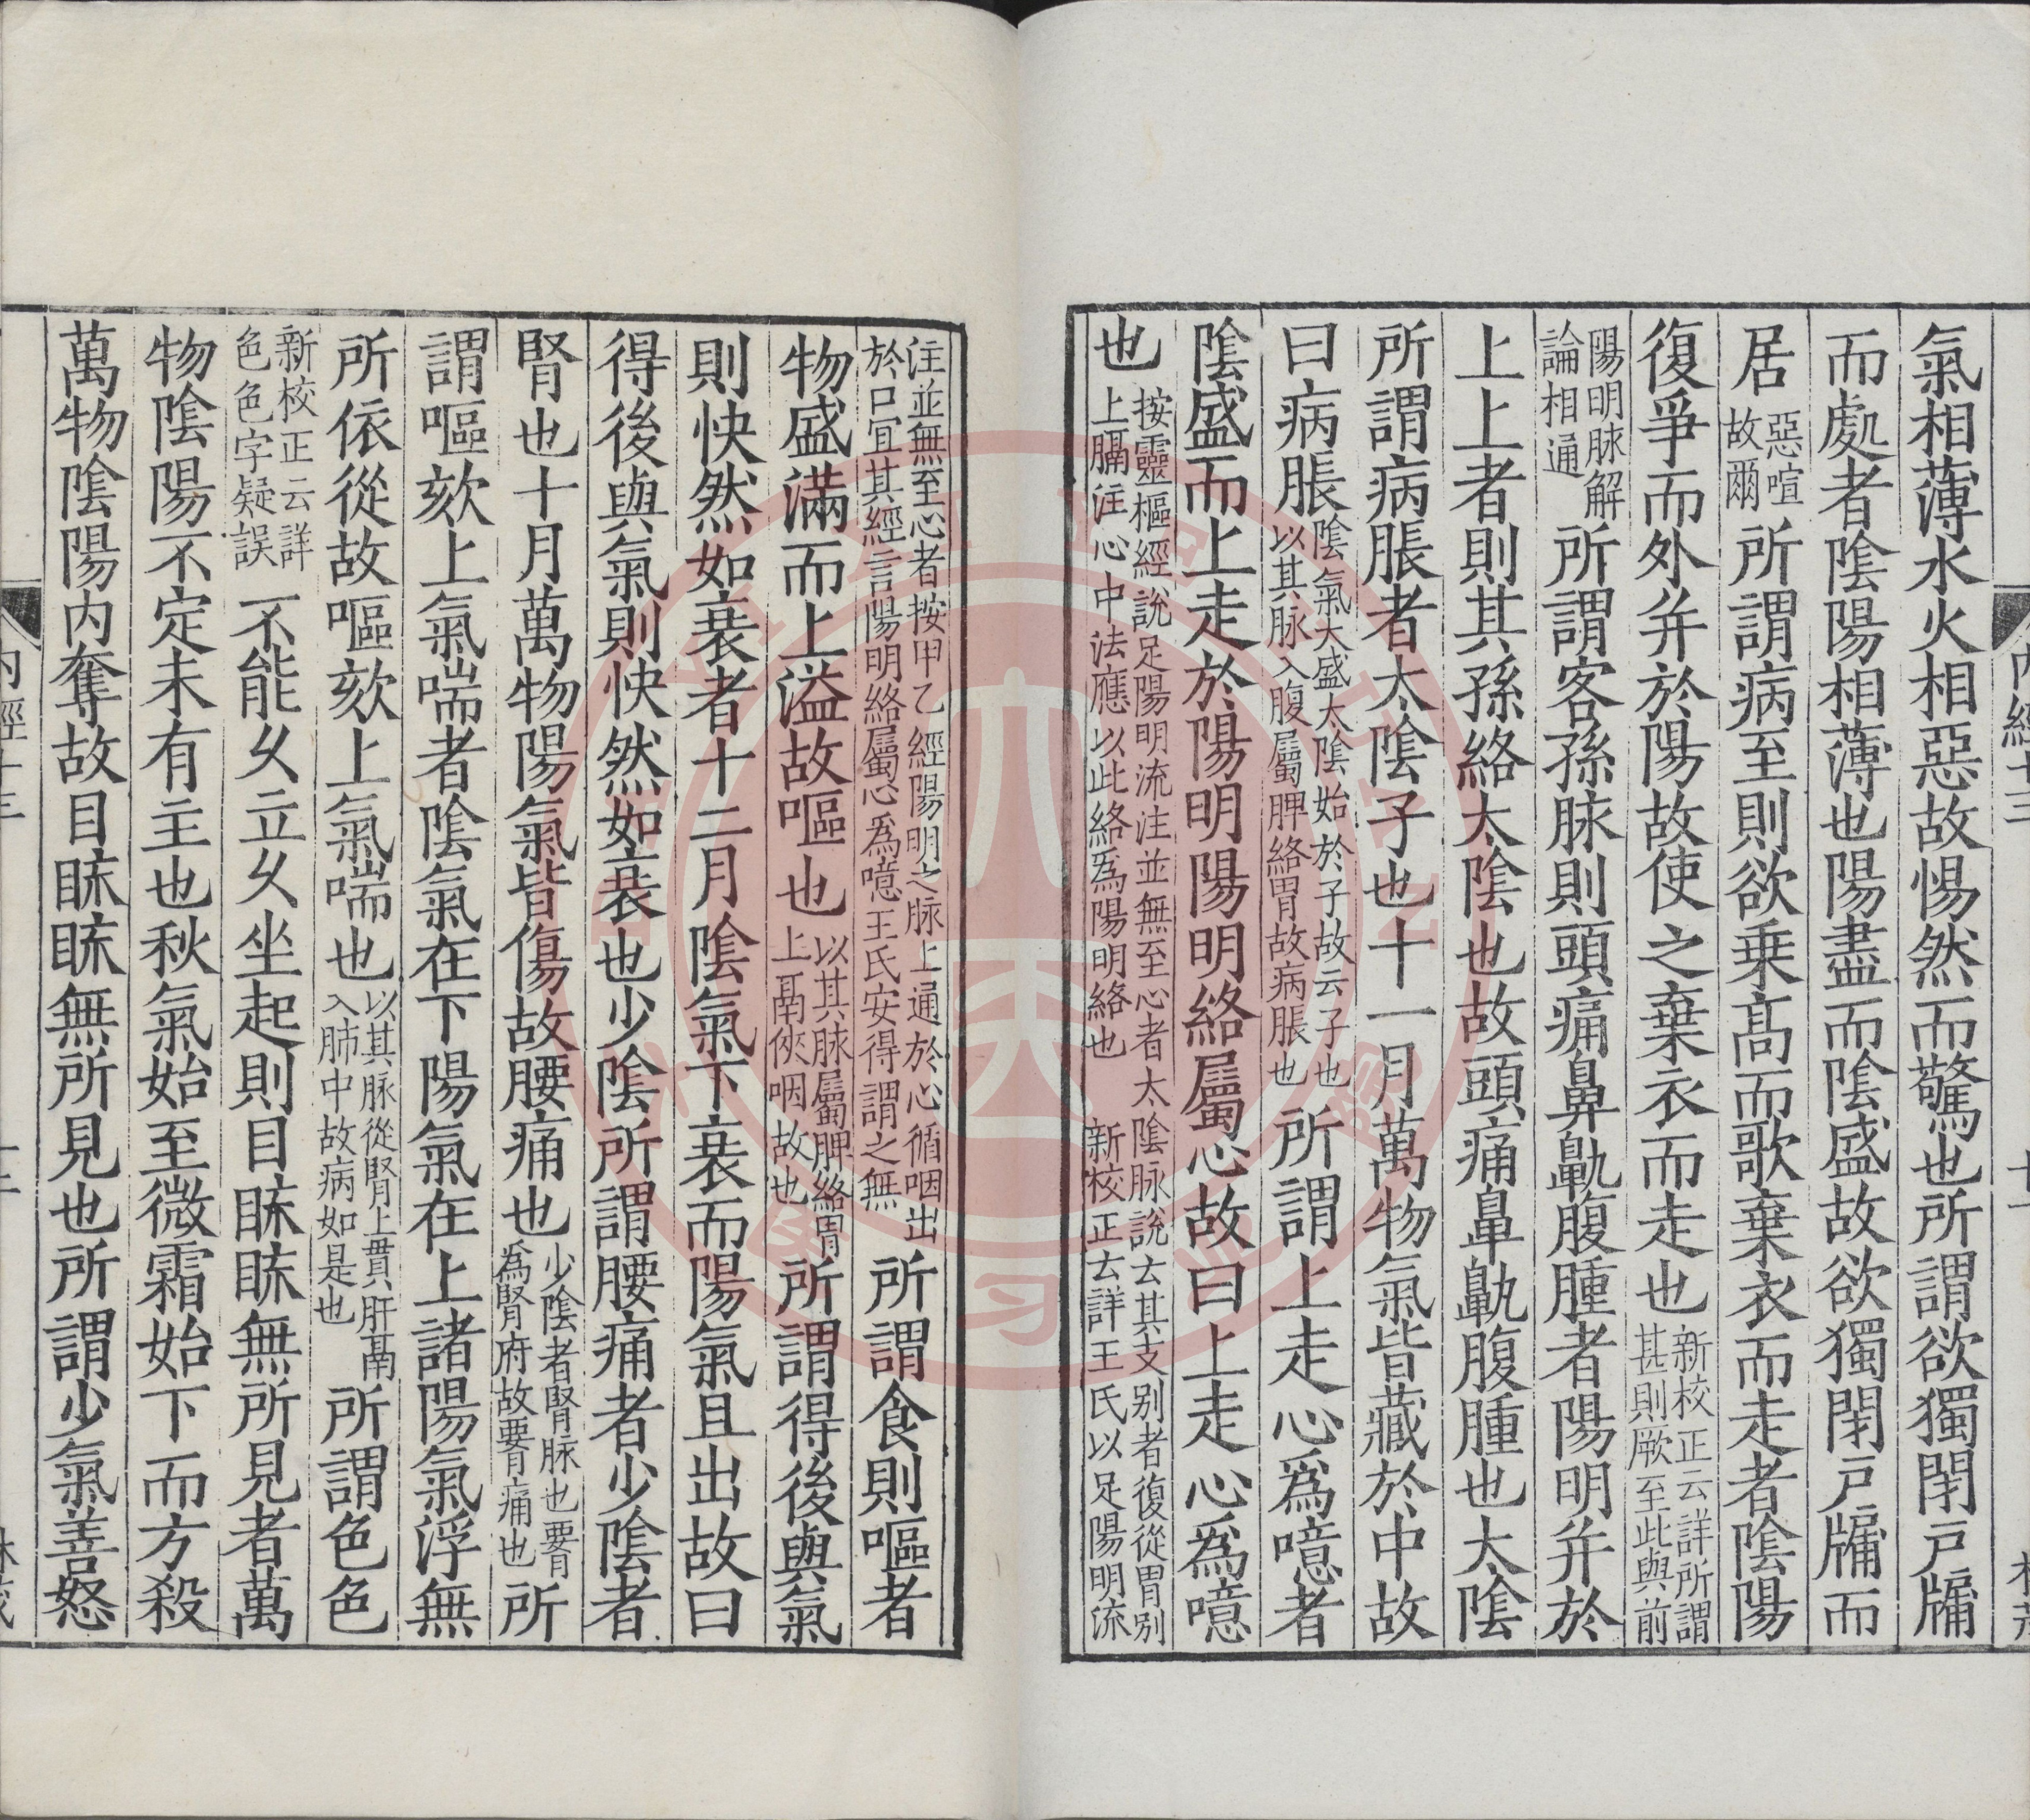 氣相薄水火相惡故惕然而驚也所謂欲獨閉戸牖
而處者陰陽相薄也陽盡而陰盛故欲獨閉戸牖而
居惡喧故爾所謂病至則欲乗高而歌棄衣而走者陰陽
復爭而外并於陽故使之棄衣而走也新校正云詳所謂甚則厥至此與前
陽明脉解論相通所謂客孫脉則頭痛鼻鼽腹腫者陽明并於
上上者則其孫絡太陰也故頭痛鼻鼽腹腫也太陰
所謂病脹者太陰子也十一月萬物氣皆藏於中故
曰病脹陰氣大盛太陰始於子故云子也以其脉入腹屬脾絡胃故病脹也所謂上走心爲噫者
陰盛而上走於陽明陽明絡屬心故曰上走心爲噫
也按靈樞經說足陽明流注並無至心者太陰脉說云其支别者復從胃别上膈注心中法應以此絡爲陽明絡也新校正云詳王氏以足陽明流
注並無至心者按甲乙經陽明之脉上通於心循咽出於口宜其經言陽明絡屬心爲噫王氏安得謂之無所謂食則嘔者
物盛滿而上溢故嘔也以其脉屬脾絡胃上鬲俠咽故也所謂得後與氣
則快然如衰者十二月陰氣下衰而陽氣且出故曰
得後與氣則快然如衰也少陰所謂腰痛者少陰者
腎也十月萬物陽氣皆傷故腰痛也少陰者腎脉也䙅爲腎府故䙅痛也所
謂嘔欬上氣喘者陰氣在下陽氣在上諸陽氣浮無
所依從故嘔欬上氣喘也以其脉從腎上貫肝鬲入肺中故病如是也所謂色色
新校正云詳色色字疑誤不能乆立乆坐起則目䀮䀮無所見者萬
物陰陽不定未有主也秋氣始至微霜始下而方殺
萬物陰陽内奪故目䀮䀮無所見也所謂少氣善怒